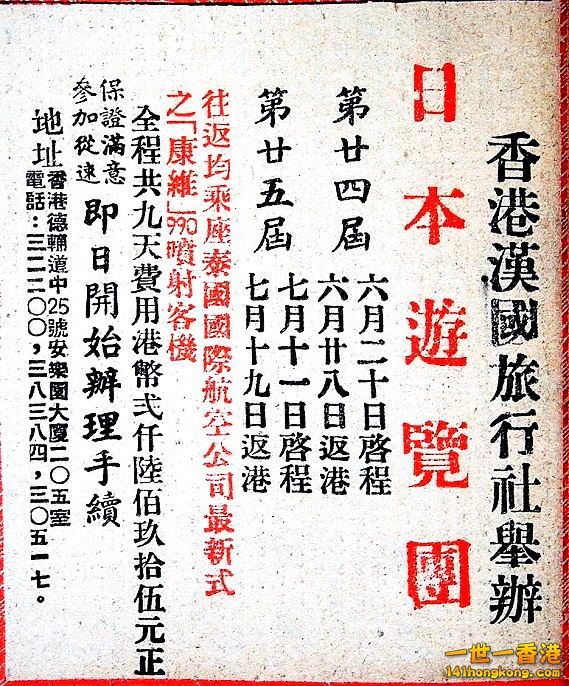 香港漢國旅行社舉辦
日本遊覽團
第廿四屆
六月二十日啓程
六月廿八日返港
第廿五屆
七月十一日啓程
七月十九日返港
往返均乘座泰國國際航空公司最新式
之「康維」990噴射客機
全程共九天費用港幣弍仟陸佰玖拾伍元正
保證滿意
參加從速
即日開始辦理手續
地址香港德輔道中25號安樂園大廈二〇五室
電話:三二二〇〇,三八三八四,三〇五一七。
一世一香港
141hongkong.com